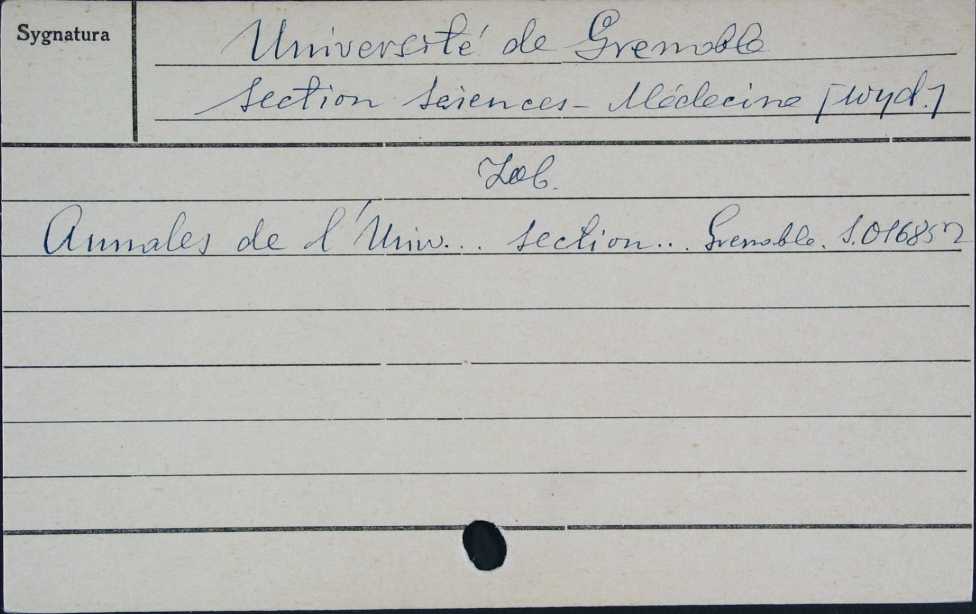 Sygnatura
Université de Grenoble
Section Sciences - Médecine [wyd.]
Zob.
Annales de l'Univ... section... Grenoble. S.016857